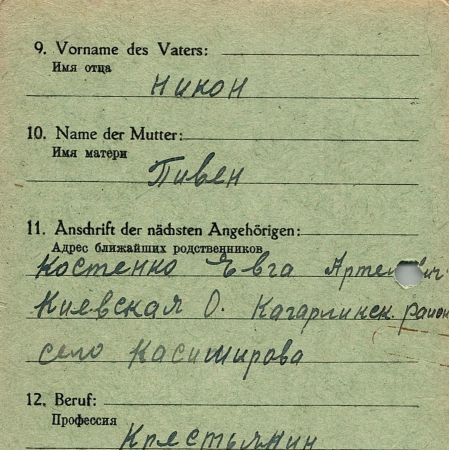 9. Vorname des Vaters:
Имя отца
Никон
10. Name der Mutter:
Имя матери
Пивен
11. Anschrift der nächsten Angehörigen:
Адрес ближайших родственников
Костенко Евга
Киевская О. Кагарлинск. район
село Касимирова
12. Beruf:
Профессия
Крестьянин